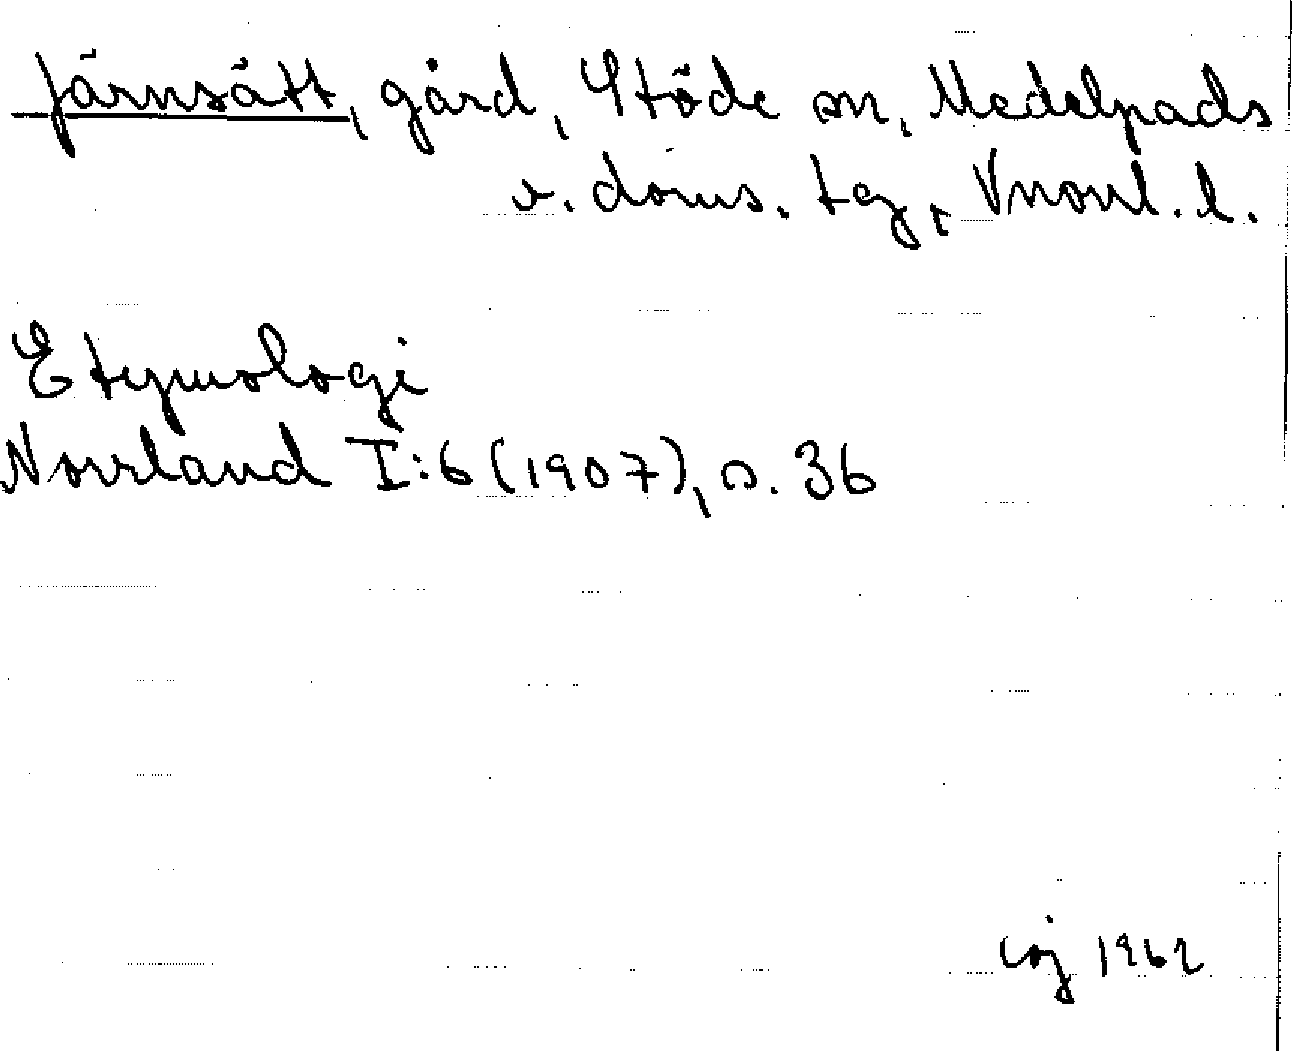 Järnsätt, gård, Stöde sn, Medelpads
v. doms. tg, Vnorrl. l.
Etymologi
Norrland I:6 (1907), s. 36
1962